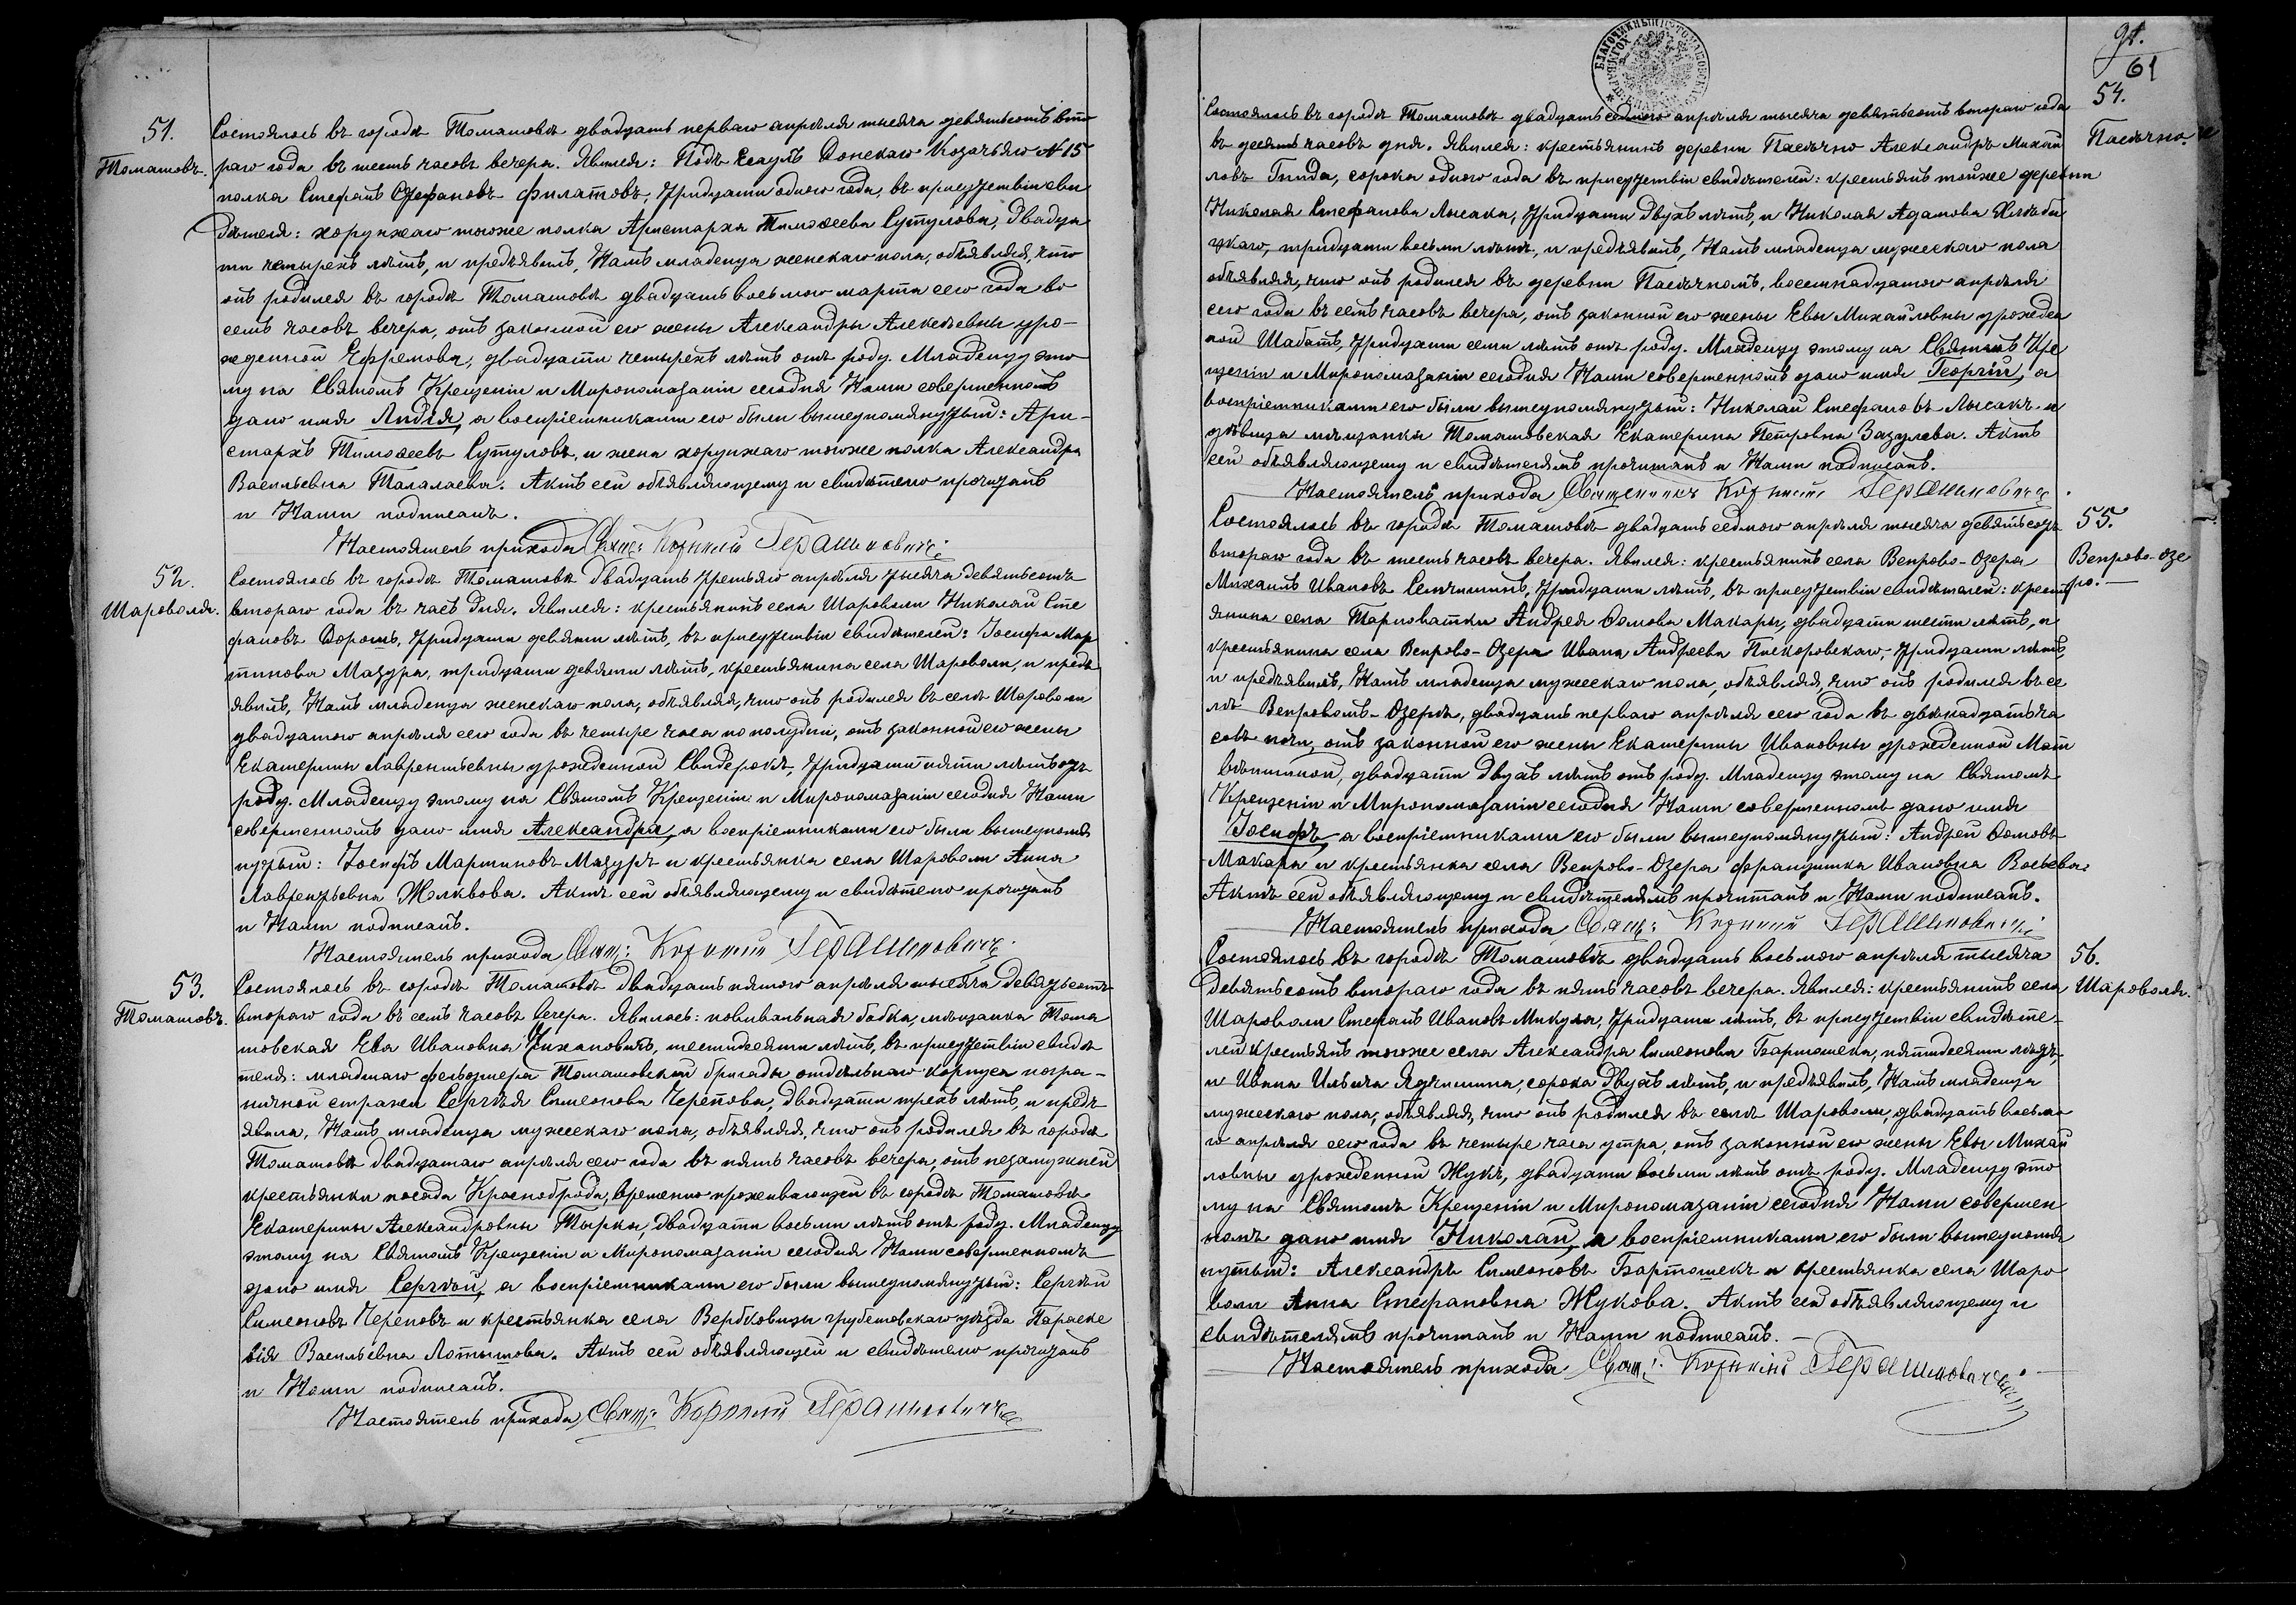 51.
Томашовъ.
Состоялось въ городѣ Томашовѣ двадцать перваго апрѣля тысяча девятьсотъ вто
раго года въ шесть часовъ вечера. Явился: Подъ Есаулъ Донскаго Козачьяго № 15
полка Стефанъ Стефановъ Филатовъ, тридцати одного года, въ присутствіи сви
дѣтеля: хорунжаго тогоже полка Аристарха Тимофеева Сутулова, двадца
ти четырехъ лѣтъ, и предъявилъ Намъ младенца женскаго пола, объявляя, что
онъ родился въ городѣ Томашовѣ двадцать восьмого марта сего года во
семь часовъ вечера, отъ законной его жены Александры Алексѣевны уро-
жденной Ефремова, двадцати четырехъ лѣтъ отъ роду. Младенцу это
му на Святомъ Крещеніи и Миропомазаніи сегодня Нами совершенномъ
дано имя Лидія, а воспріемниками его были вышеупомянутый: Ари-
стархъ Тимофеевъ Сутуловъ, и жена хорунжаго тогоже полка Александра
Васильевна Талалаева. Актъ сей объявляющему и свидѣтелю прочитанъ
и Нами подписанъ.
Настоятель прихода Свящ: Корнилій Герашиновичъ
52.
Шароволя.
Состоялось въ городѣ Томашовѣ двадцать третьяго апрѣля тысяча девятьсотъ
втораго года въ часъ дня. Явился: крестьянинъ села Шароволи Николай Сте
фановъ Дорошъ, тридцати девяти лѣтъ, въ присутствіи свидѣтелей: Іосифа Мар
тинова Мазура, тридцати девяти лѣтъ, крестьянина села Шароволи, и предъ
явилъ Намъ младенца женскаго пола, объявляя, что онъ родился въ селѣ Шароволи
двадцатого апрѣля сего года въ четыре часа по полудни, отъ законной его жены
Екатерины Лаврентьевны урожденной Свидерокъ, тридцати пяти лѣтъ отъ
роду. Младенцу этому на Святомъ Крещеніи и Миропомазаніи сегодня Нами
совершенномъ дано имя Александра, а воспріемниками его были вышеупомя
нутый: Іосифъ Мартиновъ Мазуръ и крестьянка села Шароволи Анна
Лаврентьевна Жолквова. Актъ сей объявляющему и свидѣтелю прочитанъ
и Нами подписанъ.
Настоятель прихода Свящ: Корнилій Герашиновичъ
53.
Томашовъ.
Состоялось въ городѣ Томашовѣ двадцать пятого апрѣля тысяча девятьсотъ
втораго года въ семь часовъ вечера. Явилась: повивальная бабка, мѣщанка Тома
шовская Ева Ивановна Тихановичъ, шестидесяти лѣтъ, въ присутствіи свидѣ
теля: младшаго фельдшера Томашовской бригады отдѣльнаго корпуса погра-
ничной стражи Сергѣя Симеонова Черепова, двадцати трехъ лѣтъ, и предъ
явила, Намъ младенца мужескаго пола, объявляя, что онъ родился въ городѣ
Томашовѣ двадцатаго апрѣля сего года въ пять часовъ вечера, отъ незамужней
крестьянки посада Красноброда, временно проживающей въ городѣ Томашовѣ
Екатерины Александровны Тырки, двадцати восьми лѣтъ отъ роду. Младенцу
этому на Святомъ Крещеніи и Миропомазаніи сегодня Нами совершенномъ
дано имя Сергѣй, а воспріемниками его были вышеупомянутый: Сергѣй
Симеоновъ Череповъ и крестьянка села Вербковицы грубешовскаго уѣзда Параске
вія Васильевна Лотышова. Актъ сей объявляющей и свидѣтелю прочитанъ
и Нами подписанъ.
Настоятель прихода Свящ: Корнилій Герашиновичъ
61
54.
Пасѣчно.
Состоялось въ городѣ Томашовѣ двадцать седмого апрѣля тысяча девятьсотъ втораго года
въ десять часовъ дня. Явился: крестьянинъ деревни Пасѣчно Александръ Михай
ловъ Гнида, сорока одного года въ присутствіи свидѣтелей: крестьянъ тойже деревни
Николая Стефанова Лысака, тридцати двухъ лѣтъ, и Николая Адамова
тридцати восьми лѣтъ, и предъявилъ, Намъ младенца мужескаго пола
объявляя, что онъ родился въ деревни Пасѣчномъ, восемнадцатого апрѣля
сего года въ семь часовъ вечера, отъ законной его жены Евы Михайловны урожден
ной Шабатъ, тридцати семи лѣтъ отъ роду. Младенцу этому на Святомъ Кре
щеніи и Миропомазаніи сегодня Нами совершенномъ дано имя Георгій, а
воспріемниками его были вышеупомянутый: Николай Стефановъ Лысакъ и
дѣвица мѣщанка Томашовская Екатерина Петровна Зазулева. Актъ
сей объявляющему и свидѣтелямъ прочитанъ и Нами подписанъ.
Настоятель прихода Священникъ Корнилій Герашиновичъ
55.
Вепрово-Озе
ро.
Состоялось въ городѣ Томашовѣ двадцать седмого апрѣля тысяча девятьсотъ
втораго года въ шесть часовъ вечера. Явился: крестьянинъ села Вепрово-Озера
Михаилъ Ивановъ Семчишинъ, тридцати лѣтъ, въ присутствіи свидѣтелей: кресть
янина села Тарноватки Андрея Фомова Макары, двадцати шести лѣтъ, и
крестьянина села Вепрово-Озера Ивана Андреева Пискоровскаго, тридцати лѣтъ,
и предъявилъ, Намъ младенца мужескаго пола, объявляя, что онъ родился въ се
лѣ Вепровомъ-Озерѣ, двадцать перваго апрѣля сего года въ двѣнадцать ча
совъ ночи, отъ законной его жены Екатерины Ивановны урожденной Мат
двадцати двухъ лѣтъ отъ роду. Младенцу этому на Святомъ
Крещеніи и Миропомазаніи сегодня Нами совершенномъ дано имя
Іосифъ, а воспріемниками его были вышеупомянутый: Андрей Фомовъ
Макара и крестьянка села Вепрово-Озера Францишка Ивановна Восьева.
Актъ сей объявляющему и свидѣтелямъ прочитанъ и Нами подписанъ.
Настоятель прихода Свящ: Корнилій Герашиновичъ
56.
Шароволя.
Состоялось въ городѣ Томашовѣ двадцать восьмого апрѣля тысяча
девятьсотъ втораго года въ пять часовъ вечера. Явился: крестьянинъ села
Шароволи Стефанъ Ивановъ Микула, тридцати лѣтъ, въ присутствіи свидѣте-
лей крестьянъ тогоже села Александра Симеонова Бартошека, пятидесяти лѣтъ,
и Ивана Ильича Ядчишина, сорока двухъ лѣтъ, и предъявилъ, Намъ младенца
мужескаго пола, объявляя, что онъ родился въ селѣ Шароволи, двадцать восьмо
го апрѣля сего года въ четыре часа утра, отъ законной его жены Евы Михай
ловны урожденной Жукъ, двадцати восьми лѣтъ отъ роду. Младенцу это
му на Святомъ Крещеніи и Миропомазаніи сегодня Нами совершен
номъ дано имя Николай, а воспріемниками его были вышеупомя
нутый: Александръ Симеоновъ Бартошекъ и крестьянка села Шаро
воли Анна Стефановна Жукова. Актъ сей объявляющему и
свидѣтелямъ прочитанъ и Нами подписанъ.
Настоятель прихода Свящ: Корнилій Герашиновичъ